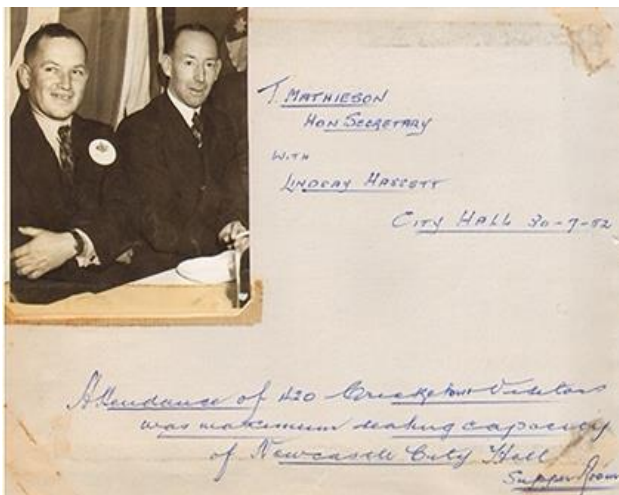 T. MATHIESON
HON SECRETARY
WITH
LINDSAY HASSETT
CITY HALL 30-7-52
Attendance of 420 Cricket Visitors
was maximum seating capacity
of Newcastle City Hall
Supper Room